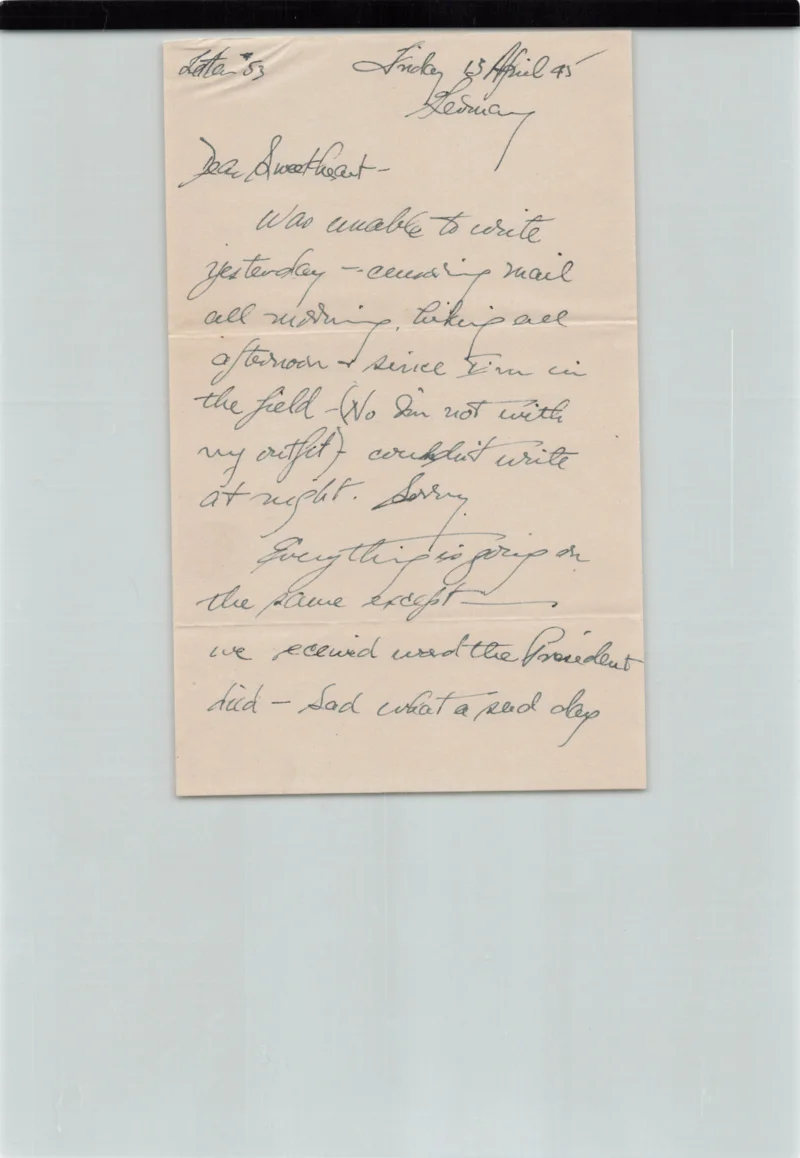 Letter #53 Friday 13 April 45
Germany
Dear Sweetheart -
Was unable to write
yesterday - censoring mail
all morning, hiking all
afternoon + since I'm in
the field - (No I'm not with
my outfit) - couldn't write
at night. Sorry
Everything is going on
the same except ——.
we eceived word the President
died - Sad what a sad day